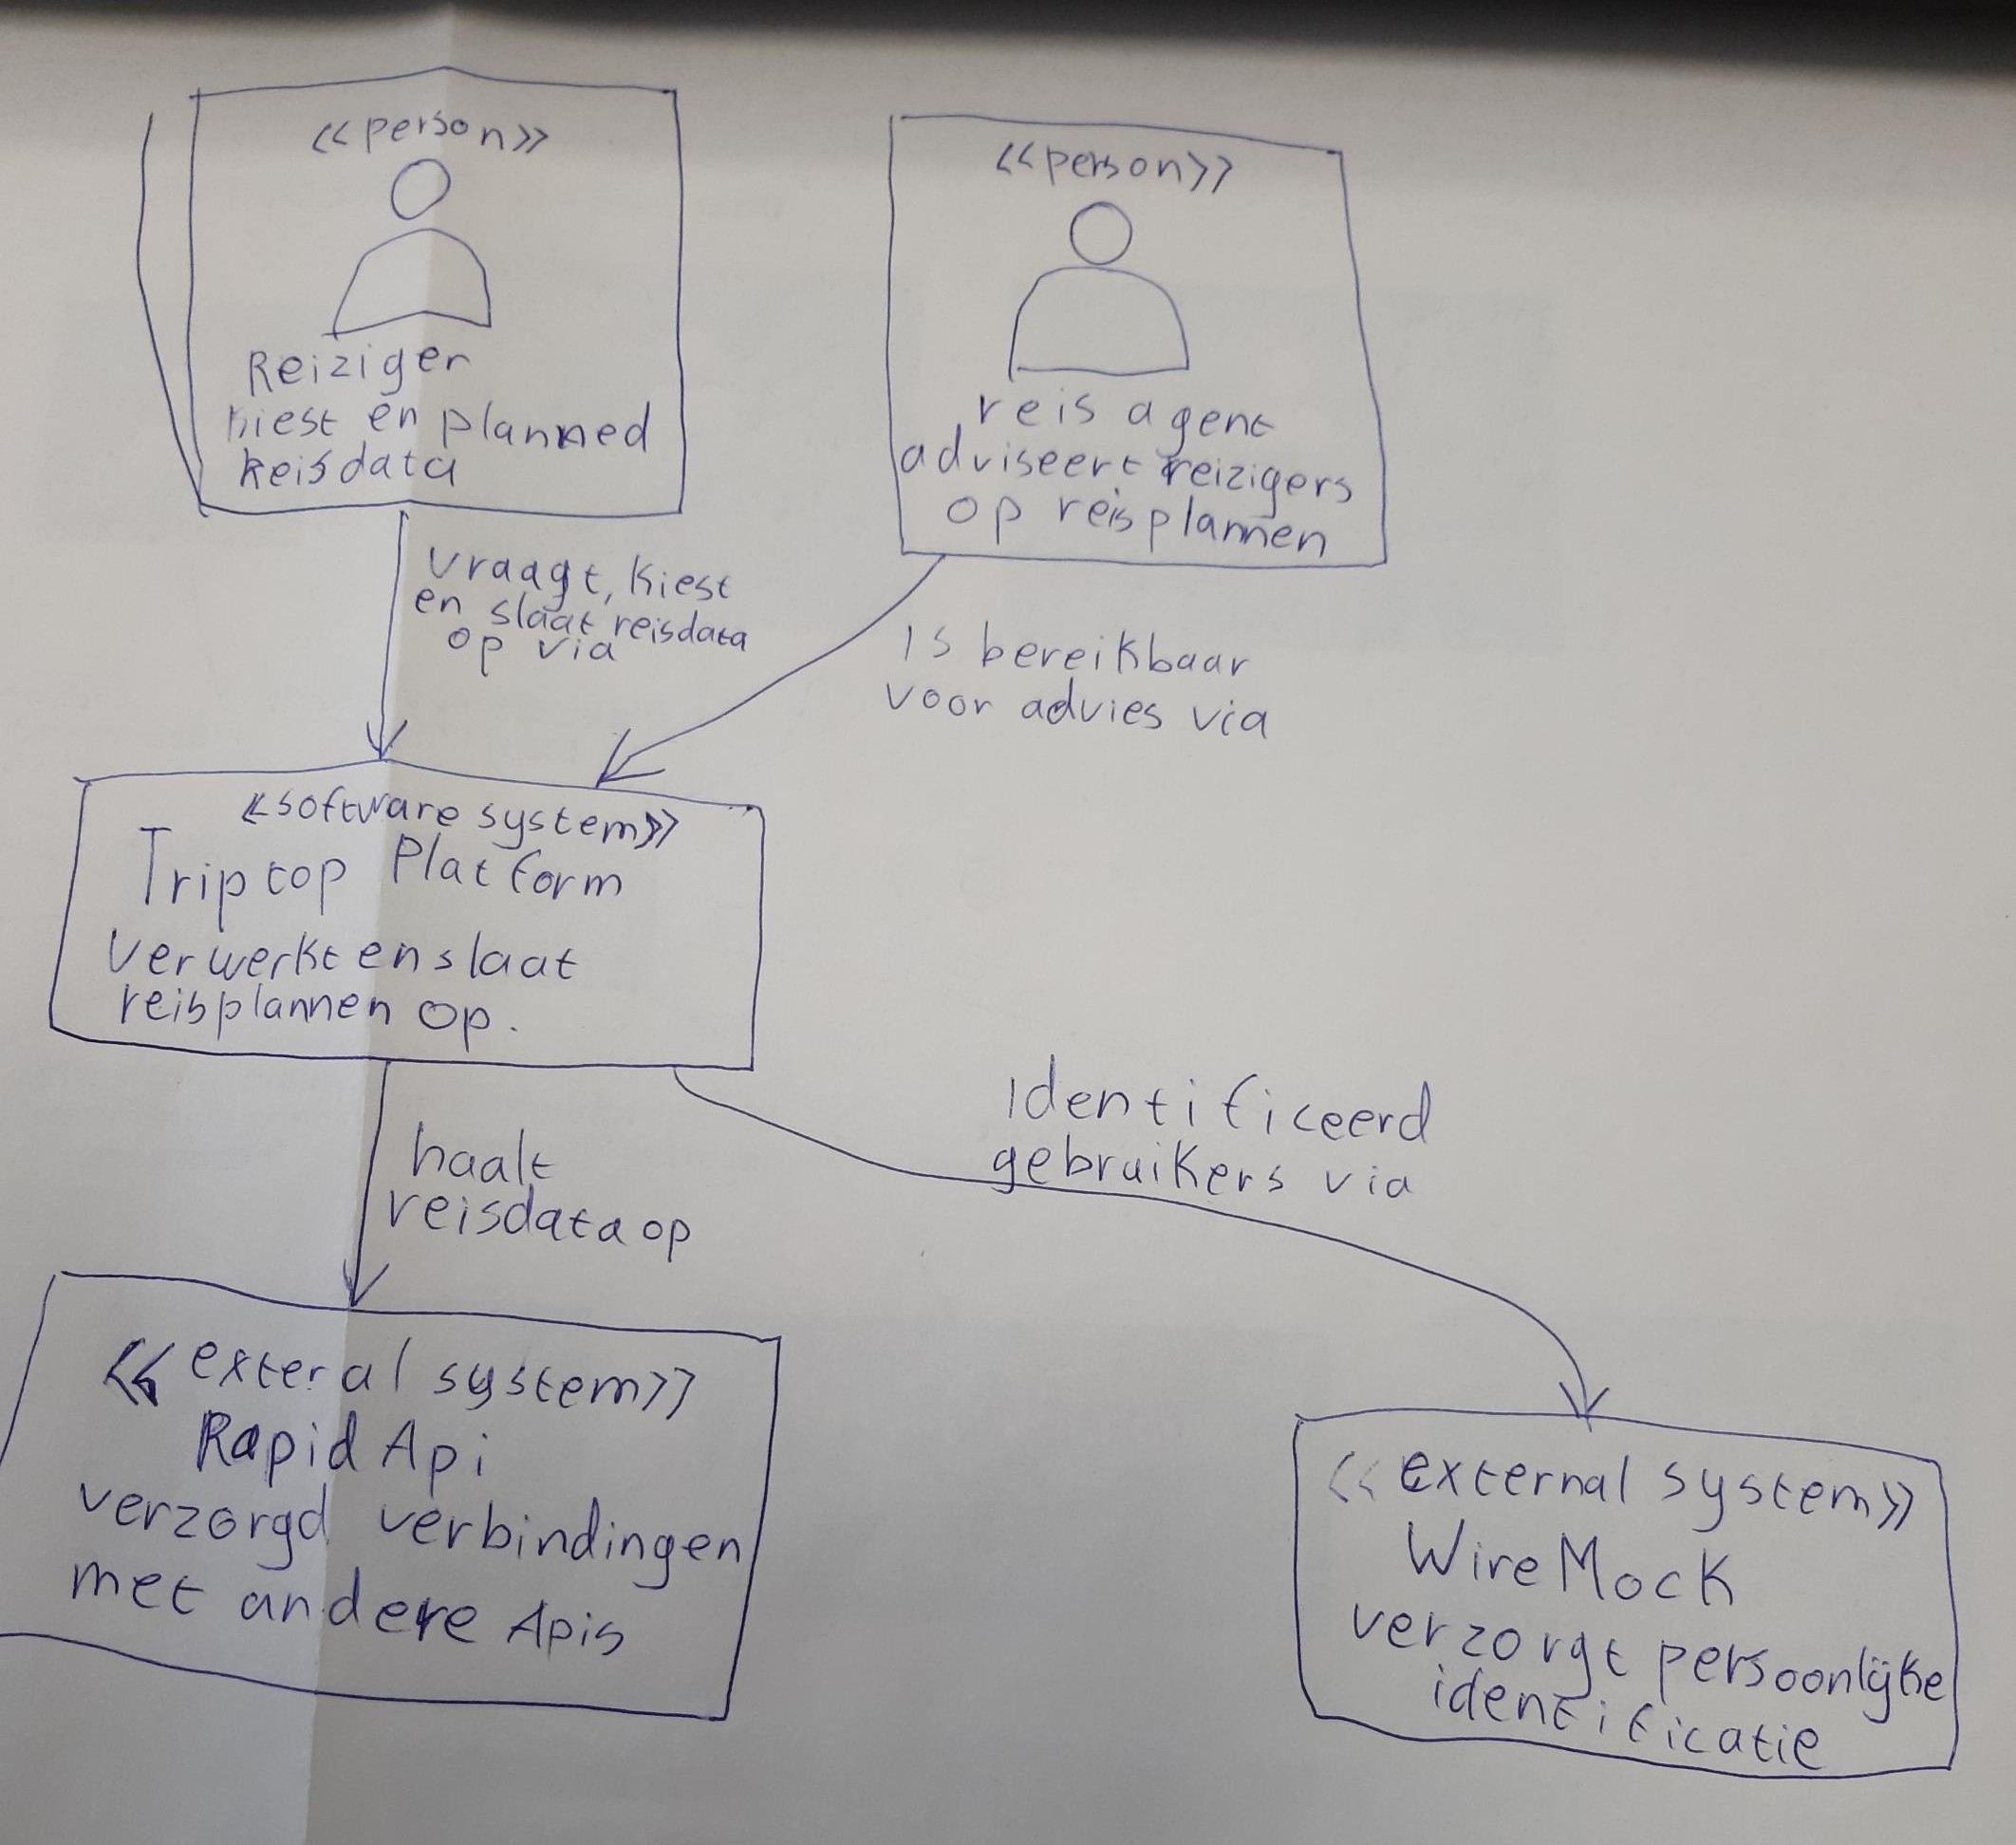 <<person>>
Reiziger
kiest en planned
Reisdata
<<person>>
reis agent
adviseert reizigers
op reisplannen
vraagt, kiest
en slaat reisdata
op via
Is bereikbaar
voor advies via
<<software system>>
Triptop Platform
Verwerkt en slaat
reisplannen op.
haalt
reisdata op
Identificeerd
gebruikers via
<<exteral system>>
Rapid Api
verzorgd verbindingen
met andere Apis
<<external system>>
WireMock
verzorgt persoonlijke
identificatie